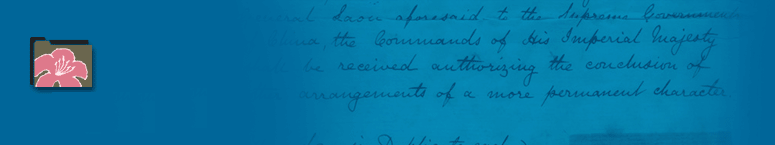 aforesaid to the Supreme Government
the Commands of His Imperial Majesty
be received authorizing the conclusion of
arrangements of a more permanent character